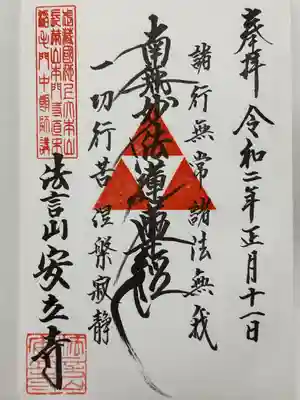 奉拝 令和二年正月十一日
諸行無常 諸法無我
南無妙法蓮華経
一切行苦 涅槃寂静
法言山 安立寺